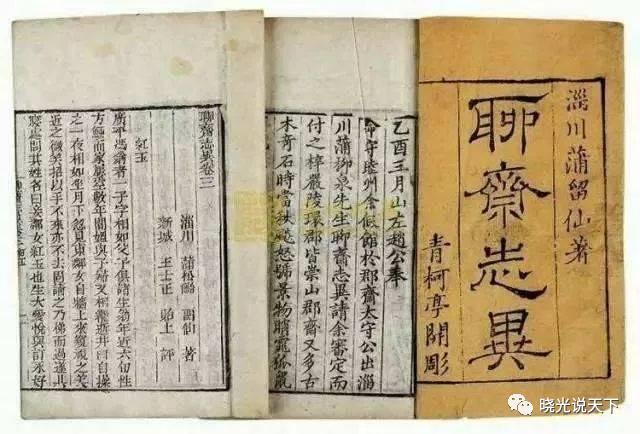 淄川蒲留仙著
聊齋志異
青柯亭開彫
乙酉三月山左趙公奉
命守睦州余假館於郡齋太守公出淄
川蒲柳泉先生聊齋志異請余審定而
付之梓嚴陵環郡皆崇山郡齋又多古
木奇石時當秋飈怒號景物睄窱狐鼠
聊齋志異卷三
淄川 蒲松齡 留仙 著
新城 王士正 貽上 評
紅玉
廣平馮翁者一子字相如父子俱諸生翁年近六旬性
方鯁而家屢空數年間媼與子婦又相繼逝井臼自操
之一夜相如坐月下忽見東鄰女自牆上來窺視之美
近之微笑招以手不來亦不去固請之乃梯而過遂共
寢處問其姓名曰妾鄰女紅玉也生大愛悅與訂永好
晓光说天下